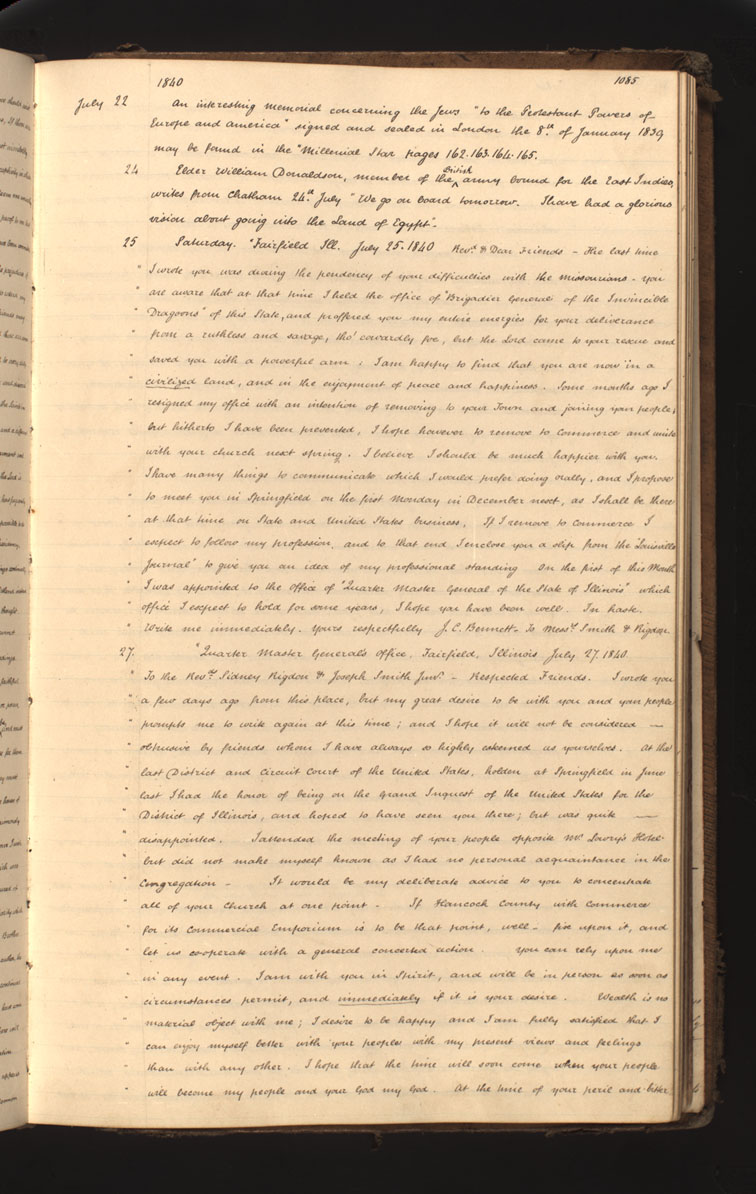 1840 1085
July 22 An interesting memorial concerning the Jews "to the Protestant Powers of
Europe and America" signed and sealed in London the 8.th of January 1839
may be found in the "Millenial Star pages 162.163.164.165.
24 Elder William Donaldson, member of the British army bound for the East Indies,
writes from Chatham 24th July "We go on board tomorrow. I have had a glorious
vision about going into the Land of Egypt".
25 Saturday. "Fairfield Ill. July 25. 1840 Revd. & Dear Friends – The last time
" I wrote you was during the pendency of your difficulties with the Missourians. You
" are aware that at that time I held the office of "Brigadier General of the Invincible
" Dragoons" of this State, and proffered you my entire energies for your deliverance
" from a ruthless and savage, tho' cowardly foe, but the Lord came to your rescue and
" saved you with a powerful arm. I am happy to find that you are now in a
" civilized land, and in the enjoyment of peace and happiness. Some months ago I
" resigned my office with an intention of removing to your Town and joining your people,
" but hitherto I have been prevented, I hope however to remove to Commerce and unite
" with your church next spring. I believe I should be much happier with you.
" I have many things to communicate which I would prefer doing orally, and I propose
" to meet you in Springfield on the first Monday in December next, as I shall be there
" at that time on State and United States business. If I remove to Commerce I
" expect to follow my profession, and to that end I enclose you a slip from the "Louisville
" Journal" to give you an idea of my professional standing On the first of this Month
" I was appointed to the office of "Quarter Master General of the State of Illinois" which
" office I expect to hold for some years, I hope you have been well. In haste.
" Write me immediately. Yours respectfully J. C. Bennett – To Messrs. Smith & Rigdon.
27. "Quarter Master General's Office, Fairfield, Illinois July 27. 1840.
" To the Revds. Sidney Rigdon & Joseph Smith Junr. – Respected Friends. I wrote you
" a few days ago from this place, but my great desire to be with you and your people
" prompts me to write again at this time; and I hope it will not be considered —
" obtrusive by friends whom I have always so highly esteemed as yourselves. At the
" last District and Circuit Court of the United States, holden at Springfield in June
" last I had the honor of being on the Grand Inquest of the United States for the
" District of Illinois, and hoped to have seen you there; but was quite —
" disappointed. I attended the meeting of your people opposite Mr. Lowry's Hotel
" but did not make myself known as I had no personal acquaintance in the
" Congregation – It would be my deliberate advice to you to concentrate
" all of your Church at one point – If Hancock County with Commerce
" for its Commercial Emporium is to be that point, well – fix upon it, and
" let us co-operate with a general concerted action. You can rely upon me
" in any event. I am with you in Spirit, and will be in person as soon as
" circumstances permit, and immediately if it is your desire. Wealth is no
" material object with me; I desire to be happy and I am fully satisfied that I
" can enjoy myself better with your people with my present views and feelings
" than with any other. I hope that the time will soon come when your people
" will become my people and your God my God. At the time of your peril and bitter